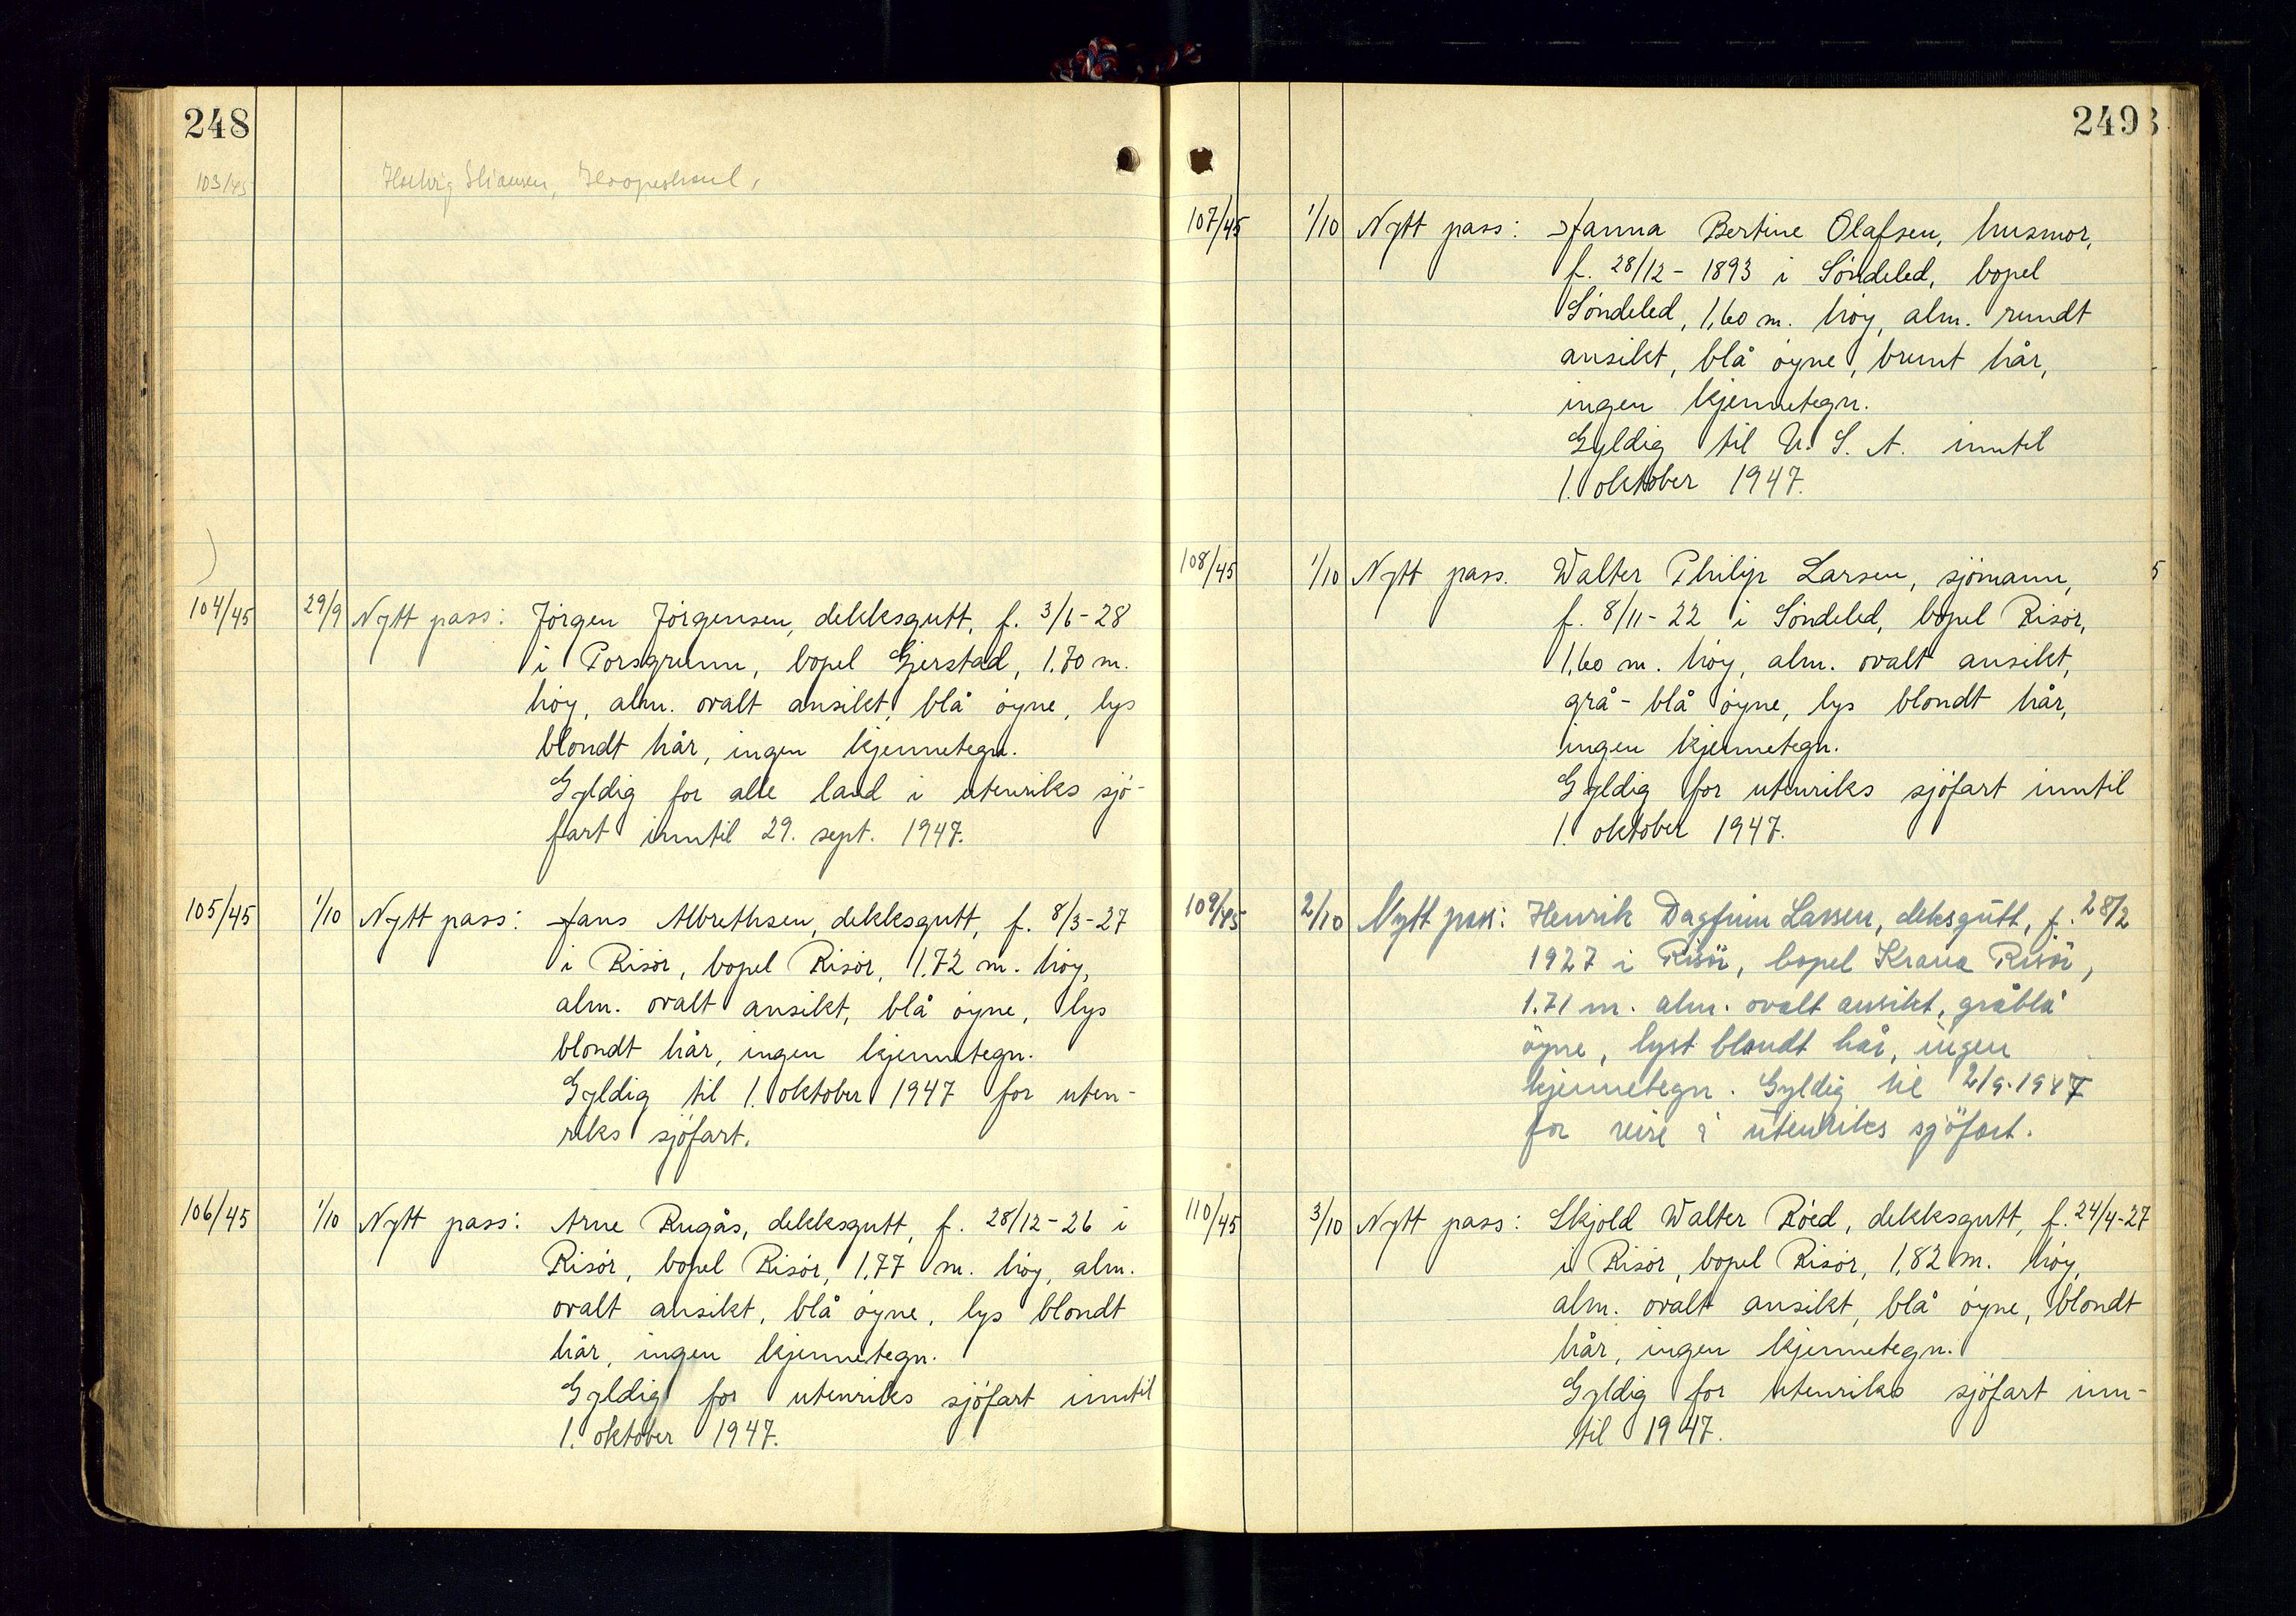 248
103/45
104/45 29/9 Nytt pass: Jörgen Jörgensen, dekksgutt, f. 3/6-28
i Porsgrunn, bopel Gjerstad, 1.70 m.
höy, alm. ovalt ansikt, blå öyne, lys
blondt hår, ingen kjennetegn.
Gyldig for alle land i utenriks sjö-
fart inntil 29. sept. 1947.
105/45 1/10 Nytt pass: Hans Albrethsen, dekksgutt, f. 8/3-27
i Risör, bopel Risör, 1.72 m. höy,
alm. ovalt ansikt, blå öyne, lys
blondt hår, ingen kjennetegn.
Gyldig til 1. oktober 1947 for uten-
riks sjöfart.
106/45 1/10 Nytt pass: Arne Rugås, dekksgutt, f. 28/12-26 i
Risör, bopel Risör, 1.77 m. höy, alm.
ovalt ansikt, blå öyne, lys blondt
hår, ingen kjennetegn.
Gyldig for utenriks sjöfart inntil
1. oktober 1947.
249
107/45 1/10 Nytt pass: Hanna Bertine Olafsen, husmor,
f. 28/12-1893 i Söndeled, bopel
Söndeled, 1,60 m. höy, alm. rundt
ansikt, blå öyne, brunt hår,
ingen kjennetegn.
Gyldig til U. S. A. inntil
1. oktober 1947.
108/45 1/10 Nytt pass. Walter Philip Larsen, sjömann,
f. 8/11-22 i Söndeled, bopel Risör,
1,60 m. höy, alm. ovalt ansikt,
grå-blå öyne, lys blondt hår,
ingen kjennetegn.
Gyldig for utenriks sjöfart inntil
1. oktober 1947.
109/45 2/10 Nytt pass: Henrik Dagfinn Lassen, deksgutt, f. 28/2
1927 i Risör, bopel Krana Risör,
1.71 m. alm. ovalt ansikt, gråblå
öyne, lyst blondt hår, ingen
kjennetegn. Gyldig til 2/9.1947
for reise i utenriks sjöfart.
110/45 3/10 Nytt pass: Skjold Walter Röed, dekksgutt, f. 24/4-27
i Risör, bopel Risör, 1,82 m. höy,
alm. ovalt ansikt, blå öyne, blondt
hår, ingen kjennetegn.
Gyldig for utenriks sjöfart inn-
til 1947.